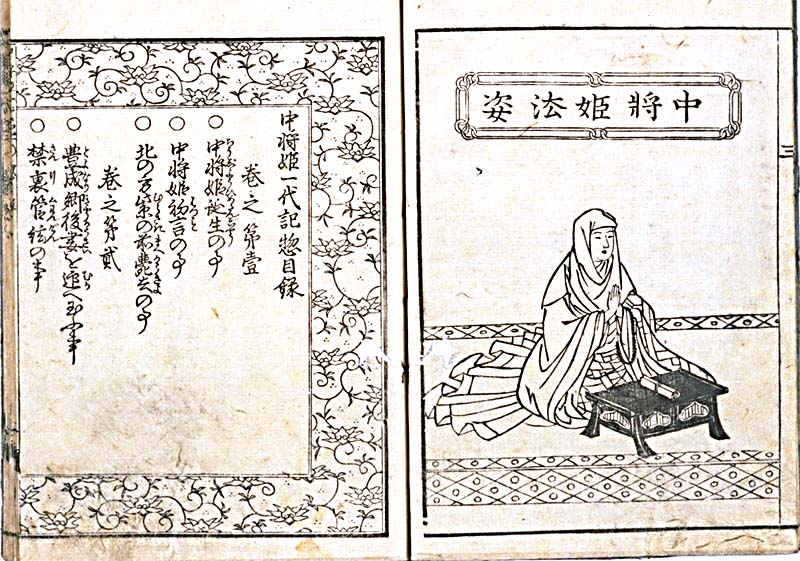 中將姫法姿
三
中将姫一代記惣目録
巻之第壹
○中将姫誕生の事
○中将姫初言の事
○北の方紫の前薨去の事
巻之第貳
○豊成卿後妻を迎へ玉ふ事
○禁裏管絃の事